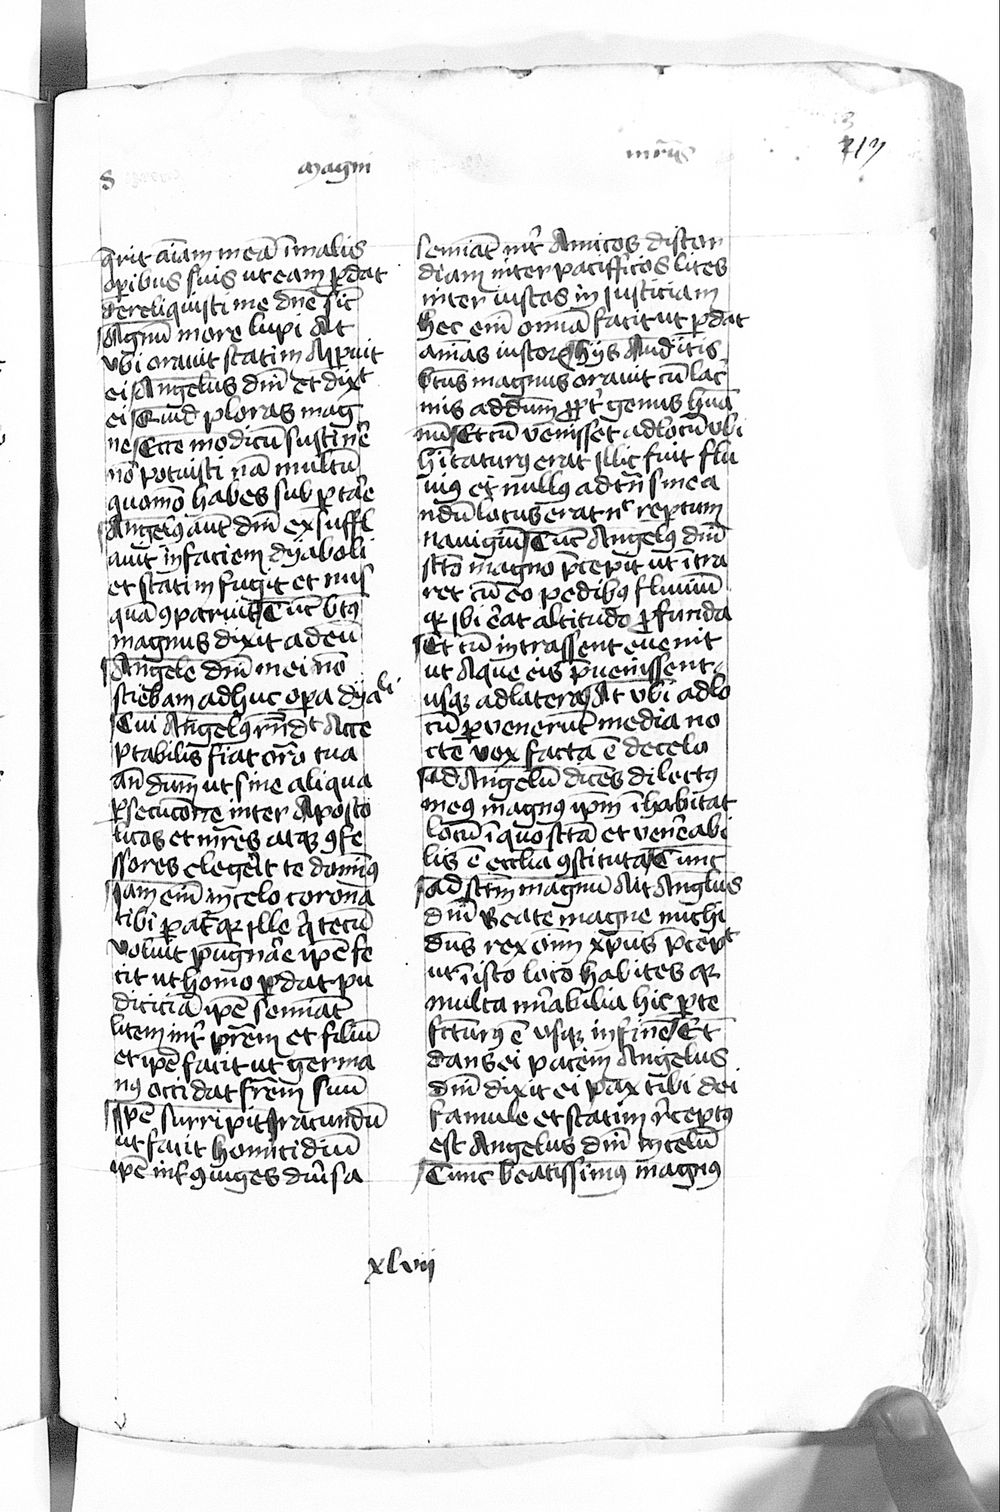 S Magni mr̄is 213
q̄rit aīam meā ī malis
oꝑibus suis ut eam ꝑdat
dereliquisti me dn̄e sic̄
Agnū more lupi At
vbi orauit statim Appuit
ei Angelus dn̄i et dixt
ei Quid ploras mag
ne Ecce modicū sustinē
nō potuisti nā multū
quomō habes sub ꝑtāe
Angelꝰ aut̄ dn̄i exsuffl
auit in faciem dyaboli
et statim fugit et nūs
quā ꝯparuit Tūc btꝰ
magnus dixit ad eū
Angele dn̄i mei nō
sciebam adhuc oꝑa dyali
Cui Angelꝰ rn̄dt Acce
ptabilis fiat orō tua
an̄ dn̄m ut sine aliqua
ꝑsecucone inter Aposto
licos et mr̄es atqꝫ ꝯfe
ssores elegerit te dominꝰ
Iam eni in celo coronā
tibi ꝑat qꝛ ille q̄ tecū
voluit pugnāe ipē fe
cit ut homo ꝑdat pu
diciciā ipē semiat̄
litem int̄ pr̄em et filiū
et ipē facit ut germa
nꝰ occidat fr̄em suū
Ipē surripit Iracundū
ut faciat homicidiū
ipē int̄ ꝯiuges diūsa
semiat̄ int̄ Amicos discor
diam inter pacifficos lites
inter iustos in iusticiam
hec eni omnia facit ut ꝑdat
aīas iustoꝝ Hijs Auditis
btus magnus orauit cū lac̄
mis ad dn̄m ꝓpt̄ genus hūa
nū Et cū venisset ad locū vbi
hitaturꝰ erat illic fuit flu
uiꝰ et nullꝰ ad tn̄seūa
ndū locus erat nc̄ reptum
nauigiū Tūc Angelꝰ dn̄i
scto magno p̄cepit ut īt̄ra
ret cū eo pedibꝰ fluuiū
qꝛ ibi erat altitudo ꝓfunda
Et cū intrassent euenit
ut Aque eis ꝑuenissent
usqꝫ ad latera At vbi ad lo
cū ꝑvenerūt media no
cte vox facta ē de celo
ad Angelū dicēs dilectꝰ
meꝰ magnꝰ ip̄m īhabitat
locū ī quo scta et venēabi
lis ē ecclia ꝯstituta Tunc
ad sctm magnū Ait Anglus
dn̄i Beate magne michi
dn̄s rex om̄ xp̄us p̄cept
ut ī isto loco habites qꝛ
multa mr̄abilia hic ꝑ te
fcturꝰ ē usqꝫ in finē Et
dans ei pacem Angelus
dn̄i dixit ei Pax tibi dei
famule et statim rc̄eptꝰ
est Angelus dn̄i in celū
Tunc beatissimꝰ magnꝰ
xlvij